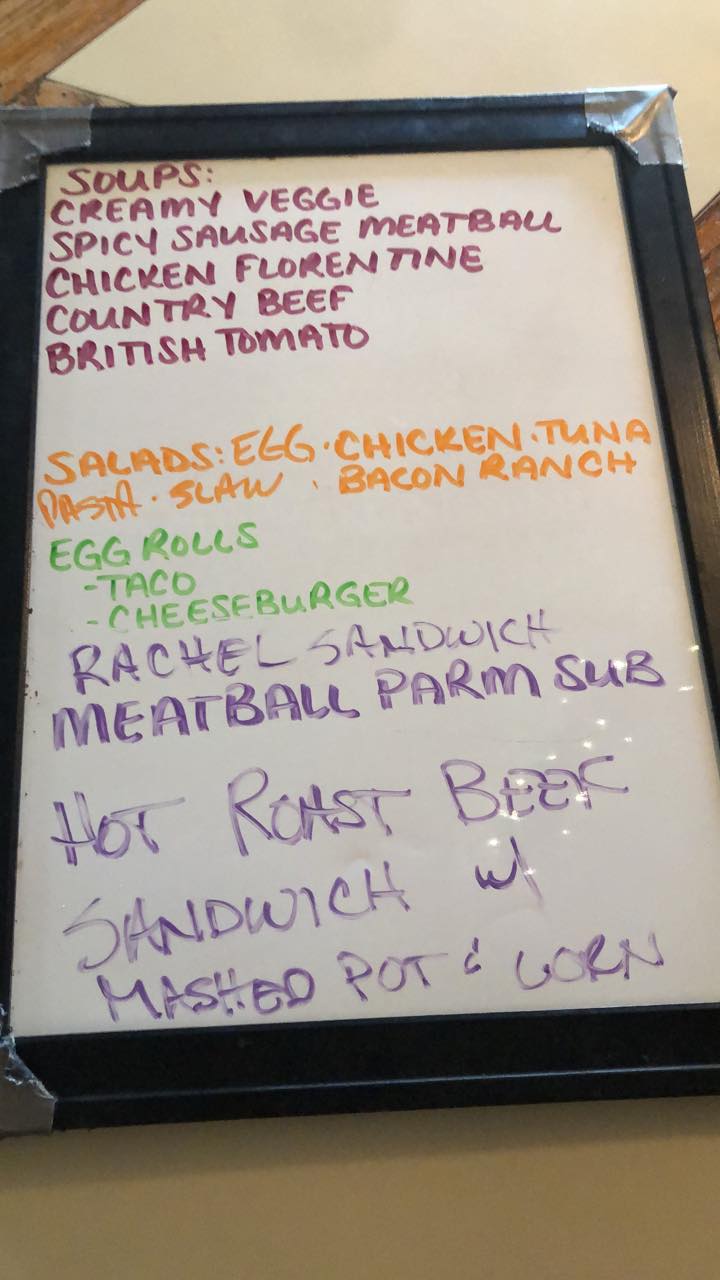 SOUPS:
CREAMY VEGGIE
SPICY SAUSAGE MEATBALL
CHICKEN FLORENTINE
COUNTRY BEEF
BRITISH TOMATO
SALADS: EGG · CHICKEN · TUNA
PASTA · SLAW · BACON RANCH
EGG ROLLS
-TACO
-CHEESEBURGER
RACHEL SANDWICH
MEATBALL PARM SUB
HOT ROAST BEEF
SANDWICH w/
MASHED POT & CORN